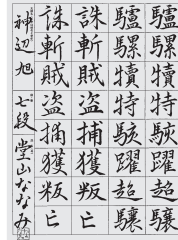 驢騾犢特駭躍超驤
驢騾犢特駭躍超驤
誅斬賊盗捕獲叛亡
誅斬賊盗捕獲叛亡
神辺 旭 七段 堂山ななみ